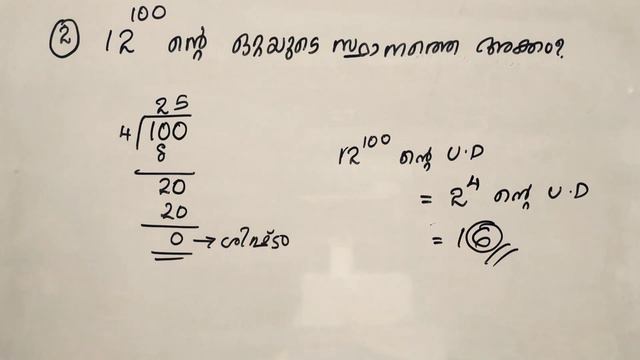 ② 12^100 ന്റെ ഒറ്റയുടെ സ്ഥാനത്തെ അക്കം?
25
4 100
8
20
20
0 → ശിഷ്ടം
12^100 ന്റെ U.D
= 2^4 ന്റെ U.D
= 16